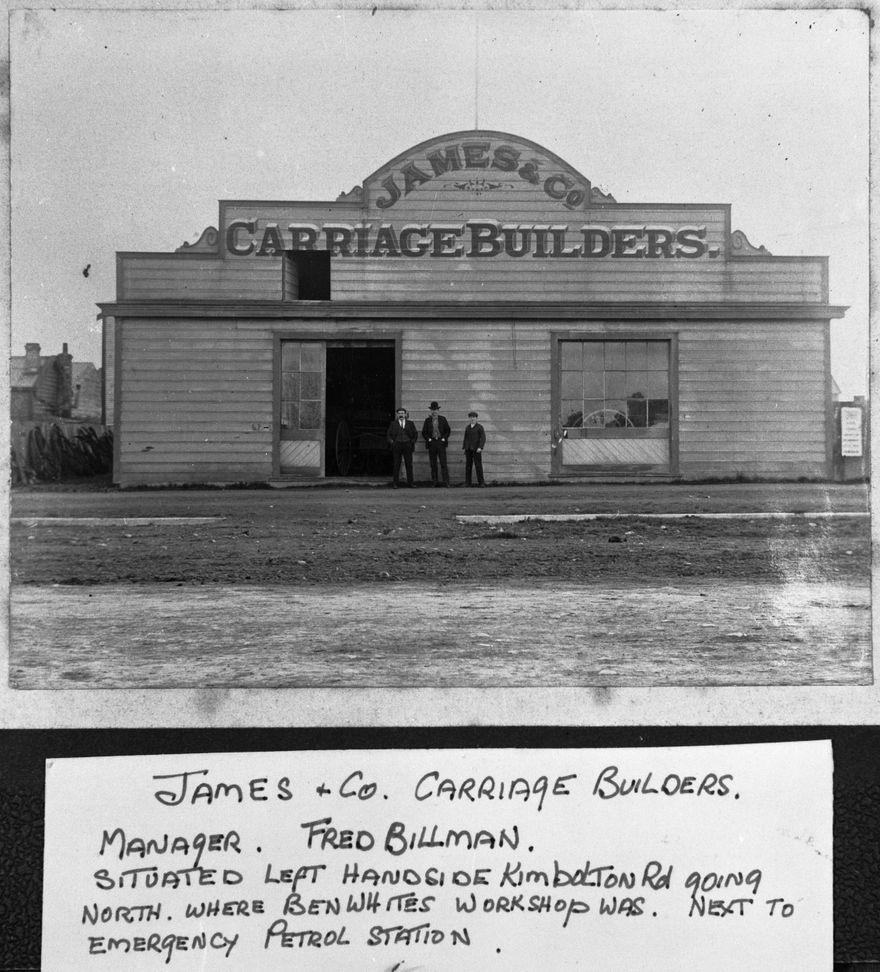 JAMES & Co
CARRIAGE BUILDERS.
JAMES + Co. CARRIAGE BUILDERS.
MANAGER. FRED BILLMAN.
SITUATED LEFT HANDSIDE KimbOLTON Rd gOING
NORTH. WHERE BEN WHITES WORKSHOP WAS. NEXT TO
EMERGENCY PETROL STATION.